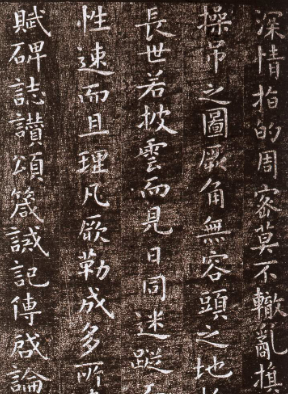 深情指的周密莫不轍亂旗
操吊之圖厥角無容頭之地
長世若披雲而見日同迷蹤
性速而且理凡厥勒成多所
賦碑誌讚頌箴誡記傳啓論